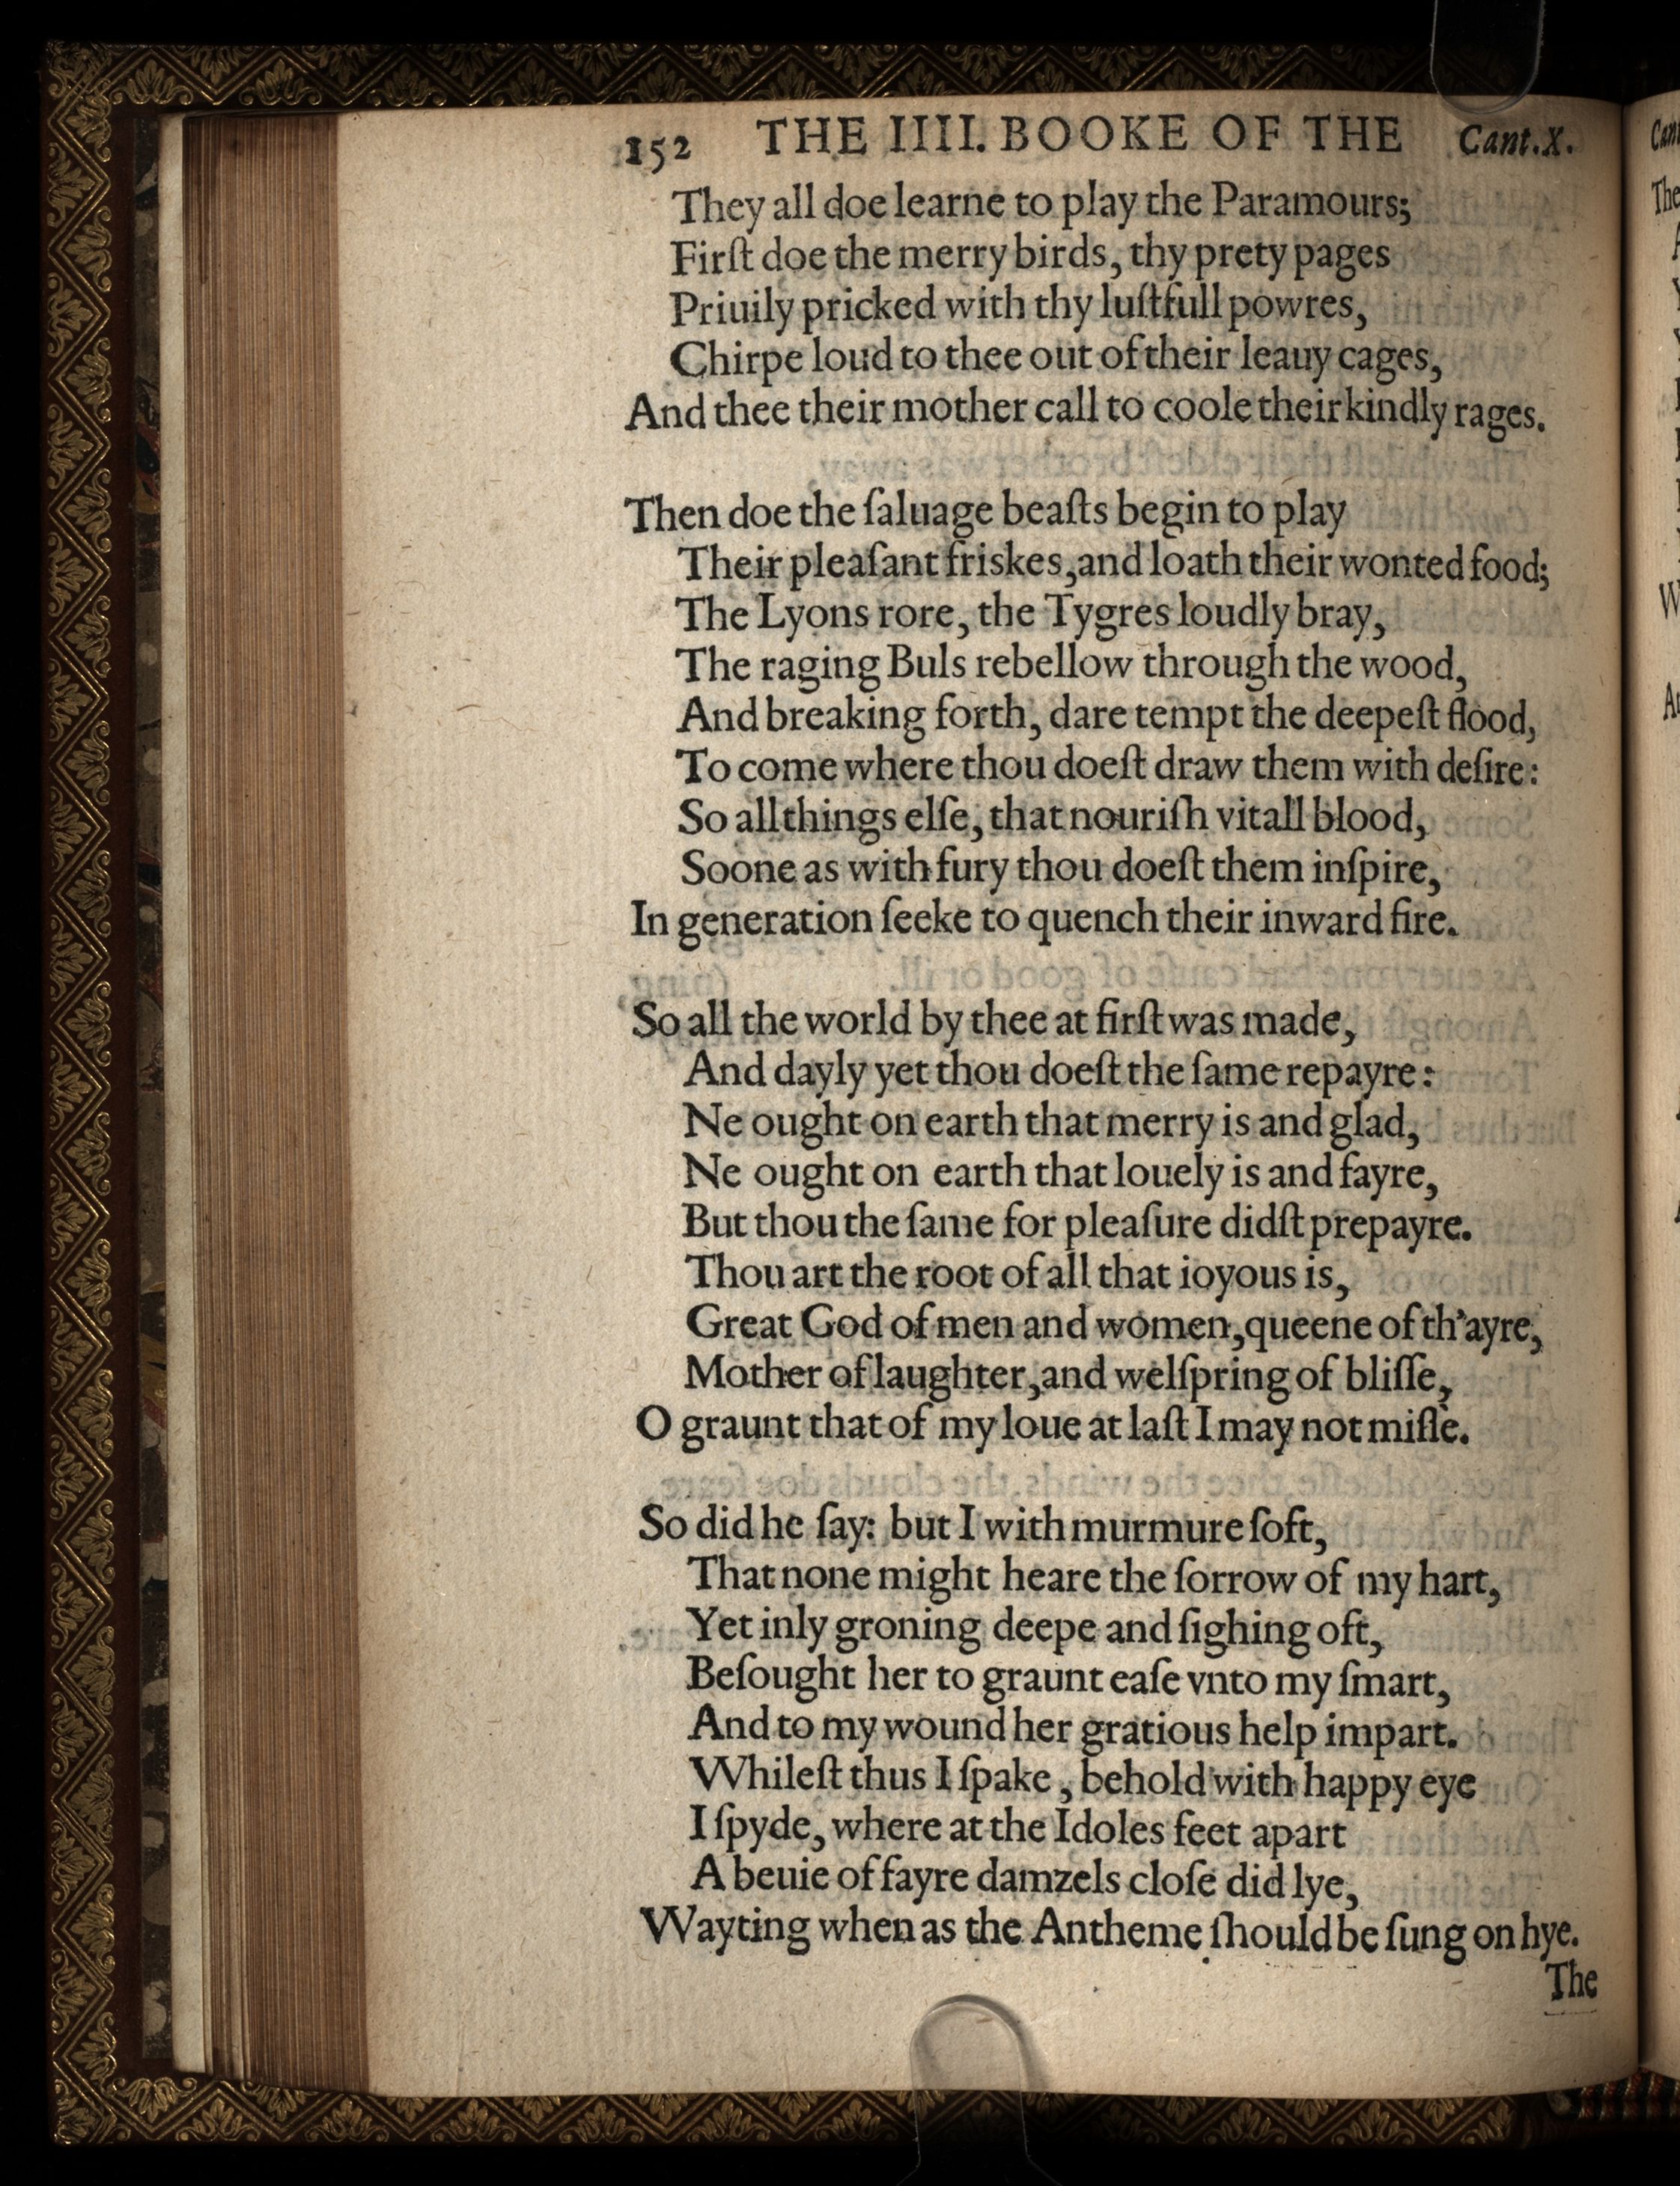 152 THE IIII. BOOKE OF THE Cant.X.
They all doe learne to play the Paramours;
Firſt doe the merry birds, thy prety pages
Priuily pricked with thy luſtfull powres,
Chirpe loud to thee out of their leauy cages,
And thee their mother call to coole their kindly rages.
Then doe the ſaluage beaſts begin to play
Their pleaſant friskes, and loath their wonted food;
The Lyons rore, the Tygres loudly bray,
The raging Buls rebellow through the wood,
And breaking forth, dare tempt the deepeſt flood,
To come where thou doeſt draw them with deſire:
So all things elſe, that nouriſh vitall blood,
Soone as with fury thou doeſt them inſpire,
In generation ſeeke to quench their inward fire.
So all the world by thee at firſt was made,
And dayly yet thou doeſt the ſame repayre:
Ne ought on earth that merry is and glad,
Ne ought on earth that louely is and fayre,
But thou the ſame for pleaſure didſt prepayre.
Thou art the root of all that ioyous is,
Great God of men and women, queene of th'ayre,
Mother of laughter, and welſpring of bliſſe,
O graunt that of my loue at laſt I may not miſſe.
So did he ſay: but I with murmure ſoft,
That none might heare the ſorrow of my hart,
Yet inly groning deepe and ſighing oft,
Beſought her to graunt eaſe vnto my ſmart,
And to my wound her gratious help impart.
Whileſt thus I ſpake, behold with happy eye
I ſpyde, where at the Idoles feet apart
A beuie of fayre damzels cloſe did lye,
Wayting when as the Antheme ſhould be ſung on hye.
The